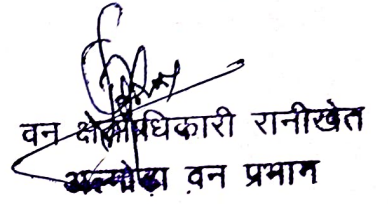 वन क्षेत्राधिकारी रानीखेत
अल्मोड़ा वन प्रभाग